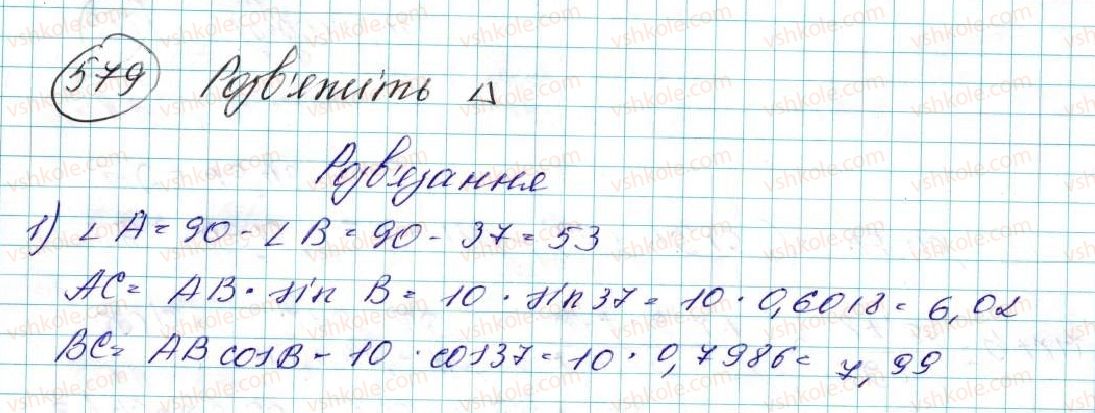 579 Розв'яжіть Δ
Розв'язання
1) ∠A = 90 - ∠B = 90 - 37 = 53
AC = AB · sin B = 10 · sin 37 = 10 · 0,6018 = 6,02
BC = AB cos B = 10 · cos 37 = 10 · 0,7986 = 7,99
vshkole.com